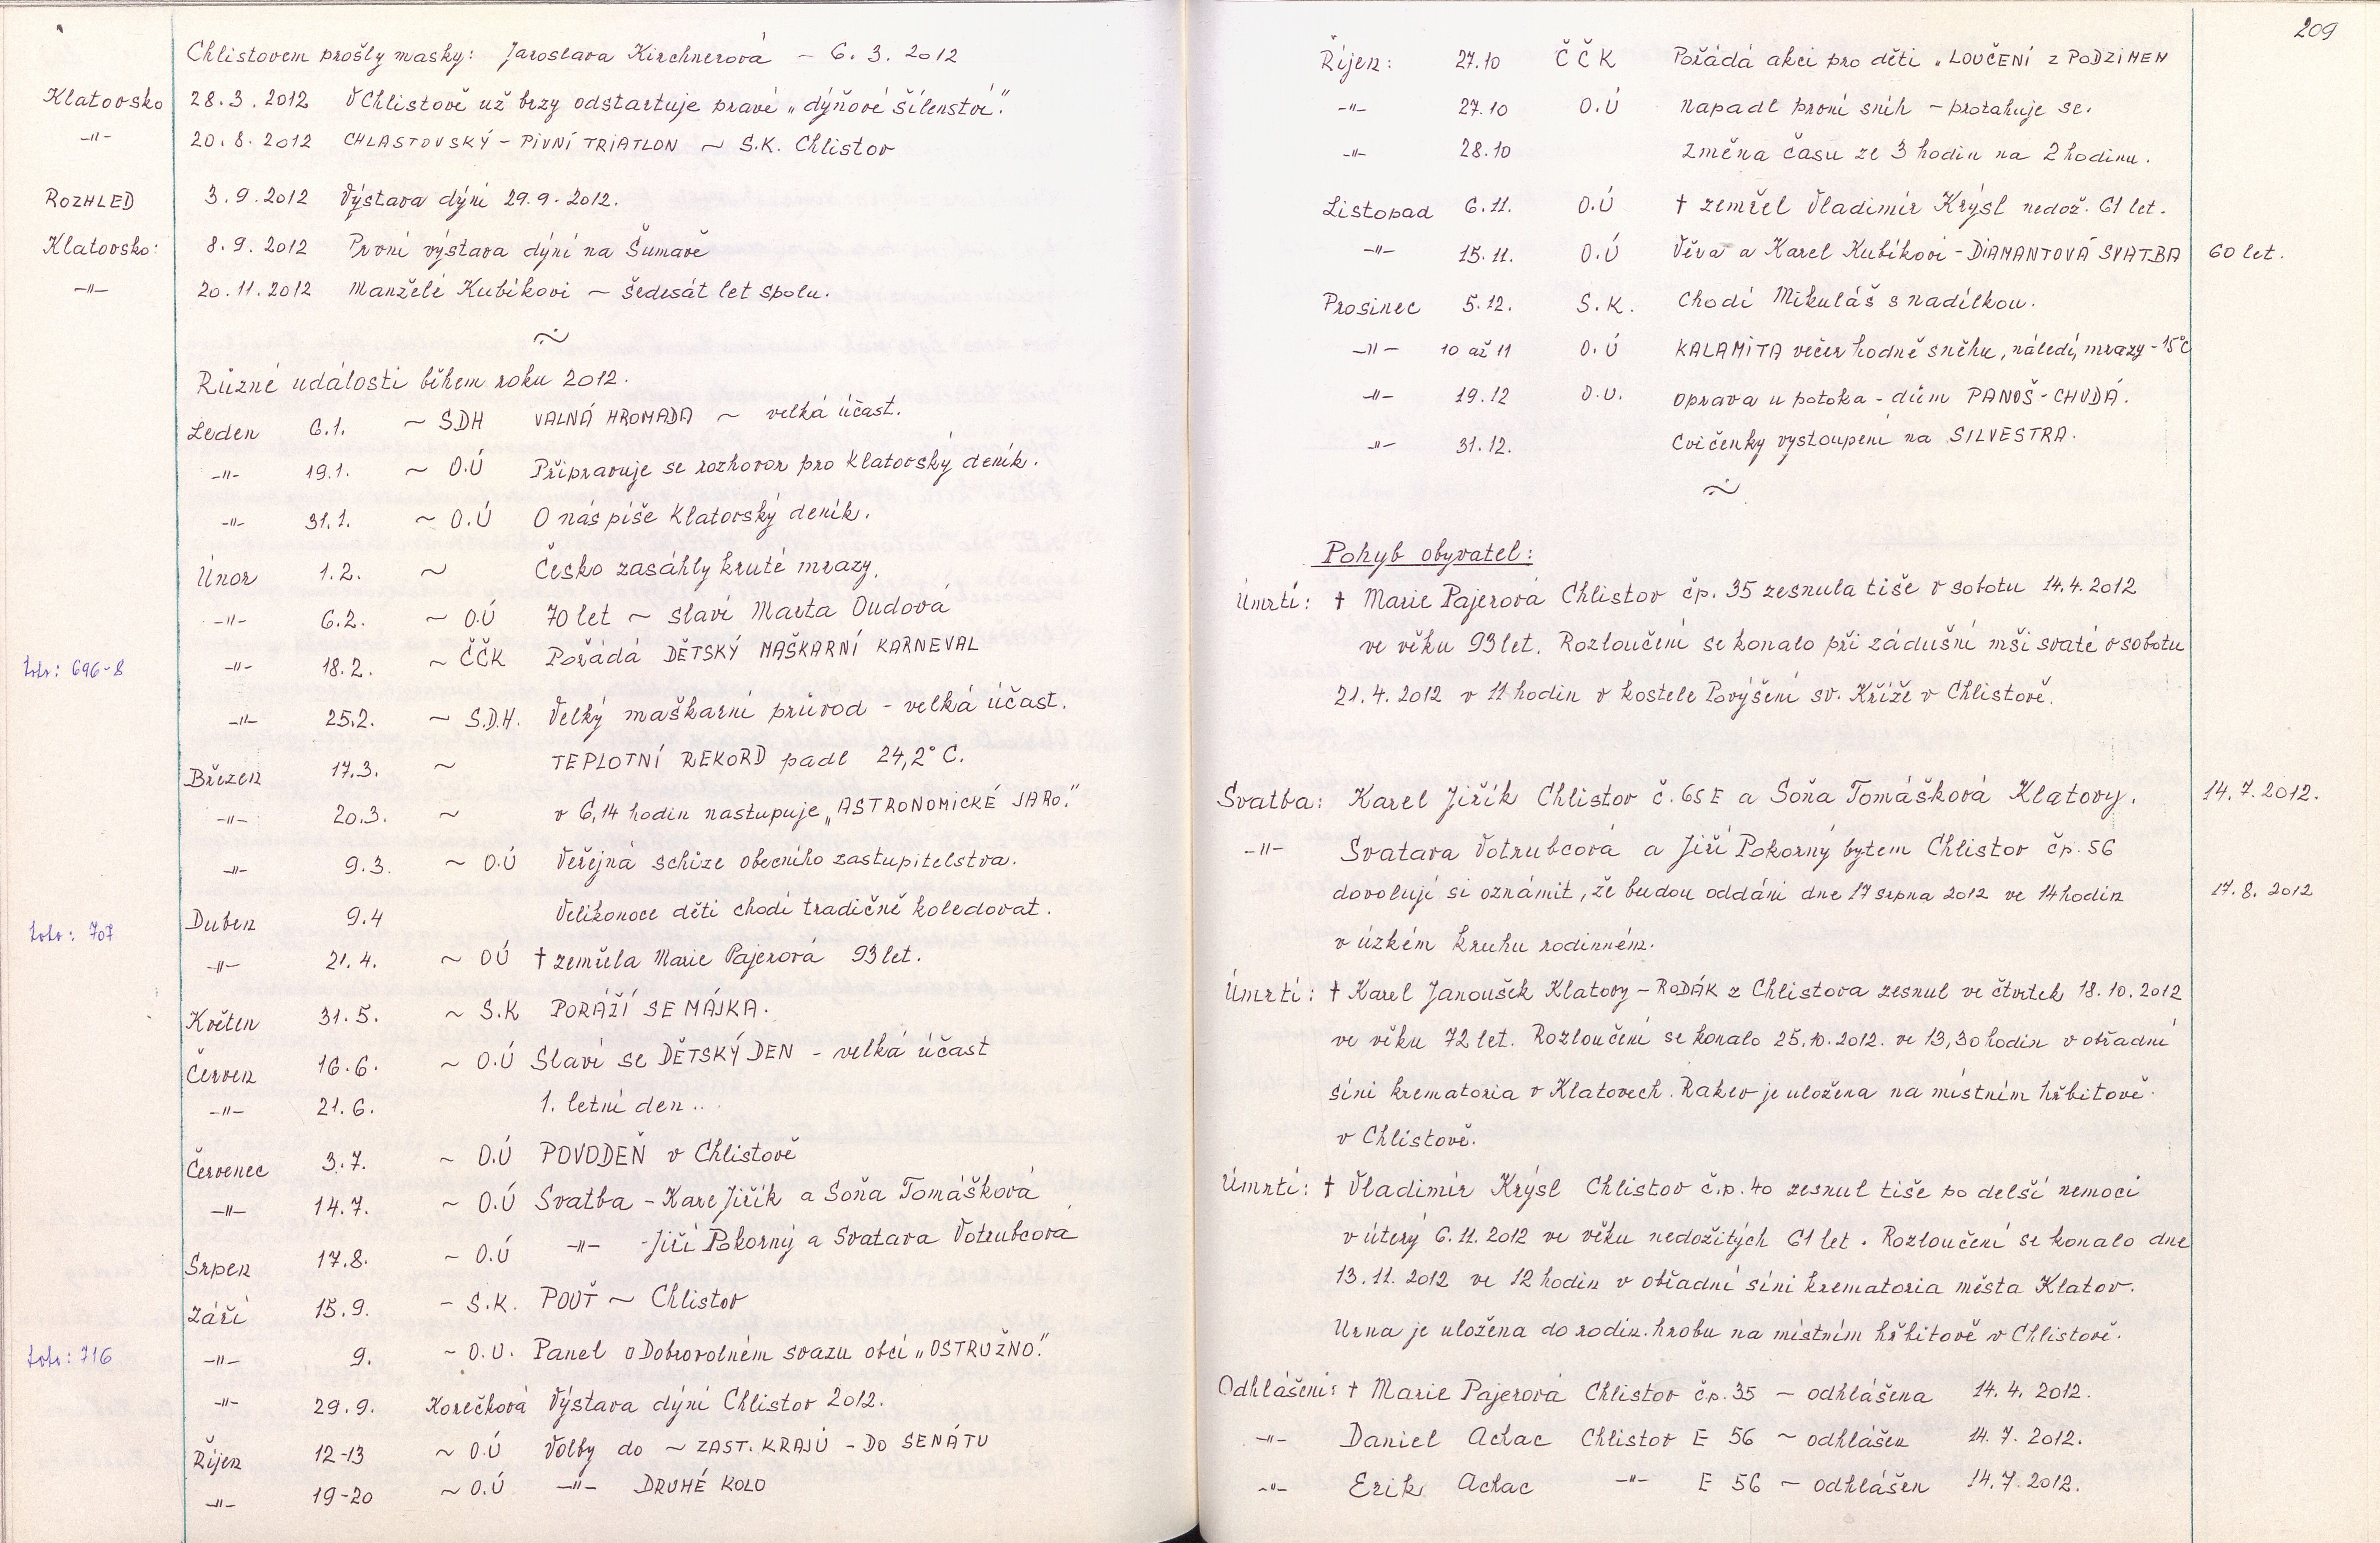 Chlistovem prošly masky: Jaroslava Kirchnerová – 6. 3. 2012
Klatovsko 28.3.2012 V Chlistově už brzy odstartuje pravé „dýňové šílenství."
-"- 20.8.2012 CHLASTOVSKÝ – PIVNÍ TRIATLON ~ S.K. Chlistov
ROZHLED 3.9.2012 Výstava dýní 29.9.2012.
Klatovsko: 8.9.2012 První výstava dýní na Šumavě
-"- 20.11.2012 Manželé Kubíkovi ~ Šedesát let spolu.
~
Různé události během roku 2012.
Leden 6.1. ~ SDH VALNÁ HROMADA ~ velká účast.
-"- 19.1. ~ O.Ú Připravuje se rozhovor pro Klatovský deník.
-"- 31.1. ~ O.Ú O nás píše Klatovský deník.
Únor 1.2. ~ Česko zasáhly kruté mrazy.
-"- 6.2. ~ O.Ú 70 let ~ slaví Marta Oudová
foto: 696-8 -"- 18.2. ~ ČČK Pořádá DĚTSKÝ MAŠKARNÍ KARNEVAL
-"- 25.2. ~ S.D.H. Velký maškarní průvod – velká účast.
Březen 17.3. ~ TEPLOTNÍ REKORD padl 24,2° C.
-"- 20.3. ~ v 6,14 hodin nastupuje „ASTRONOMICKÉ JARO."
-"- 9.3. ~ O.Ú Veřejná schůze obecního zastupitelstva.
Duben 9.4 Velikonoce děti chodí tradičně koledovat.
foto: 707
-"- 21.4. ~ OÚ † zemřela Marie Pajerová 93 let.
Květen 31.5. ~ S.K PORÁŽÍ SE MÁJKA.
Červen 16.6. ~ O.Ú Slaví se DĚTSKÝ DEN – velká účast
-"- 21.6. 1. letní den..
Červenec 3.7. ~ O.Ú POVODEŇ v Chlistově
-"- 14.7. ~ O.Ú Svatba – Karel Jiřík a Soňa Tomášková
Srpen 17.8. ~ O.Ú -"- – Jiří Pokorný a Svatava Votrubcová
Září 15.9. – S.K. POUŤ ~ Chlistov
foto: 716 -"- 9. ~ O.U. Panel o Dobrovolném svazu obcí „OSTRUŽNO."
-"- 29.9. Korečková Výstava dýní Chlistov 2012.
Říjen 12-13 ~ O.Ú Volby do ~ ZAST. KRAJŮ – DO SENÁTU
-"- 19-20 ~ O.Ú -"- DRUHÉ KOLO
209
Říjen: 27.10 ČČK Pořádá akci pro děti „LOUČENÍ Z PODZIMEM
-"- 27.10 O.Ú napadl první sníh – protahuje se.
-"- 28.10 Změna času ze 3 hodin na 2 hodinu.
Listopad 6.11. O.Ú † zemřel Vladimír Krýsl nedož. 61 let.
-"- 15.11. O.Ú Věva a Karel Kubíkovi – DIAMANTOVÁ SVATBA 60 let.
Prosinec 5.12. S.K. Chodí Mikuláš s nadílkou.
-"- 10 až 11 O.Ú KALAMITA večer hodně sněhu, náledí, mrazy – 15°C
-"- 19.12 O.U. oprava u potoka – dům PANOŠ – CHUDÁ.
-"- 31.12. Cvičenky vystoupení na SILVESTRA.
~
Pohyb obyvatel:
Úmrtí: † Marie Pajerová Chlistov čp. 35 zesnula tiše v sobotu 14.4.2012
ve věku 93 let. Rozloučení se konalo při zádušní mši svaté v sobotu
21.4.2012 v 11 hodin v kostele Povýšení sv. Kříže v Chlistově.
Svatba: Karel Jiřík Chlistov č. 65 E a Soňa Tomášková Klatovy. 14.7.2012.
-"- Svatava Votrubcová a Jiří Pokorný bytem Chlistov čp. 56
dovolují si oznámit, že budou oddáni dne 17 srpna 2012 ve 14 hodin 17.8.2012
v úzkém kruhu rodinném.
Úmrtí: † Karel Janoušek Klatovy – RODÁK z Chlistova zesnul ve čtvrtek 18.10.2012
ve věku 72 let. Rozloučení se konalo 25.10.2012. ve 13,30 hodin v obřadní
síni krematoria v Klatovech. Rakev je uložena na místním hřbitově
v Chlistově.
Úmrtí: † Vladimír Krýsl Chlistov č.p. 40 zesnul tiše po delší nemoci
v úterý 6.11.2012 ve věku nedožitých 61 let. Rozloučení se konalo dne
13.11.2012 ve 12 hodin v obřadní síni krematoria města Klatov.
Urna je uložena do rodin. hrobu na místním hřbitově v Chlistově.
Odhlášení: † Marie Pajerová Chlistov čp. 35 ~ odhlášena 14.4.2012.
-"- Daniel Achac Chlistov E 56 ~ odhlášen 14.7.2012.
-"- Erik Achac -"- E 56 ~ odhlášen 14.7.2012.